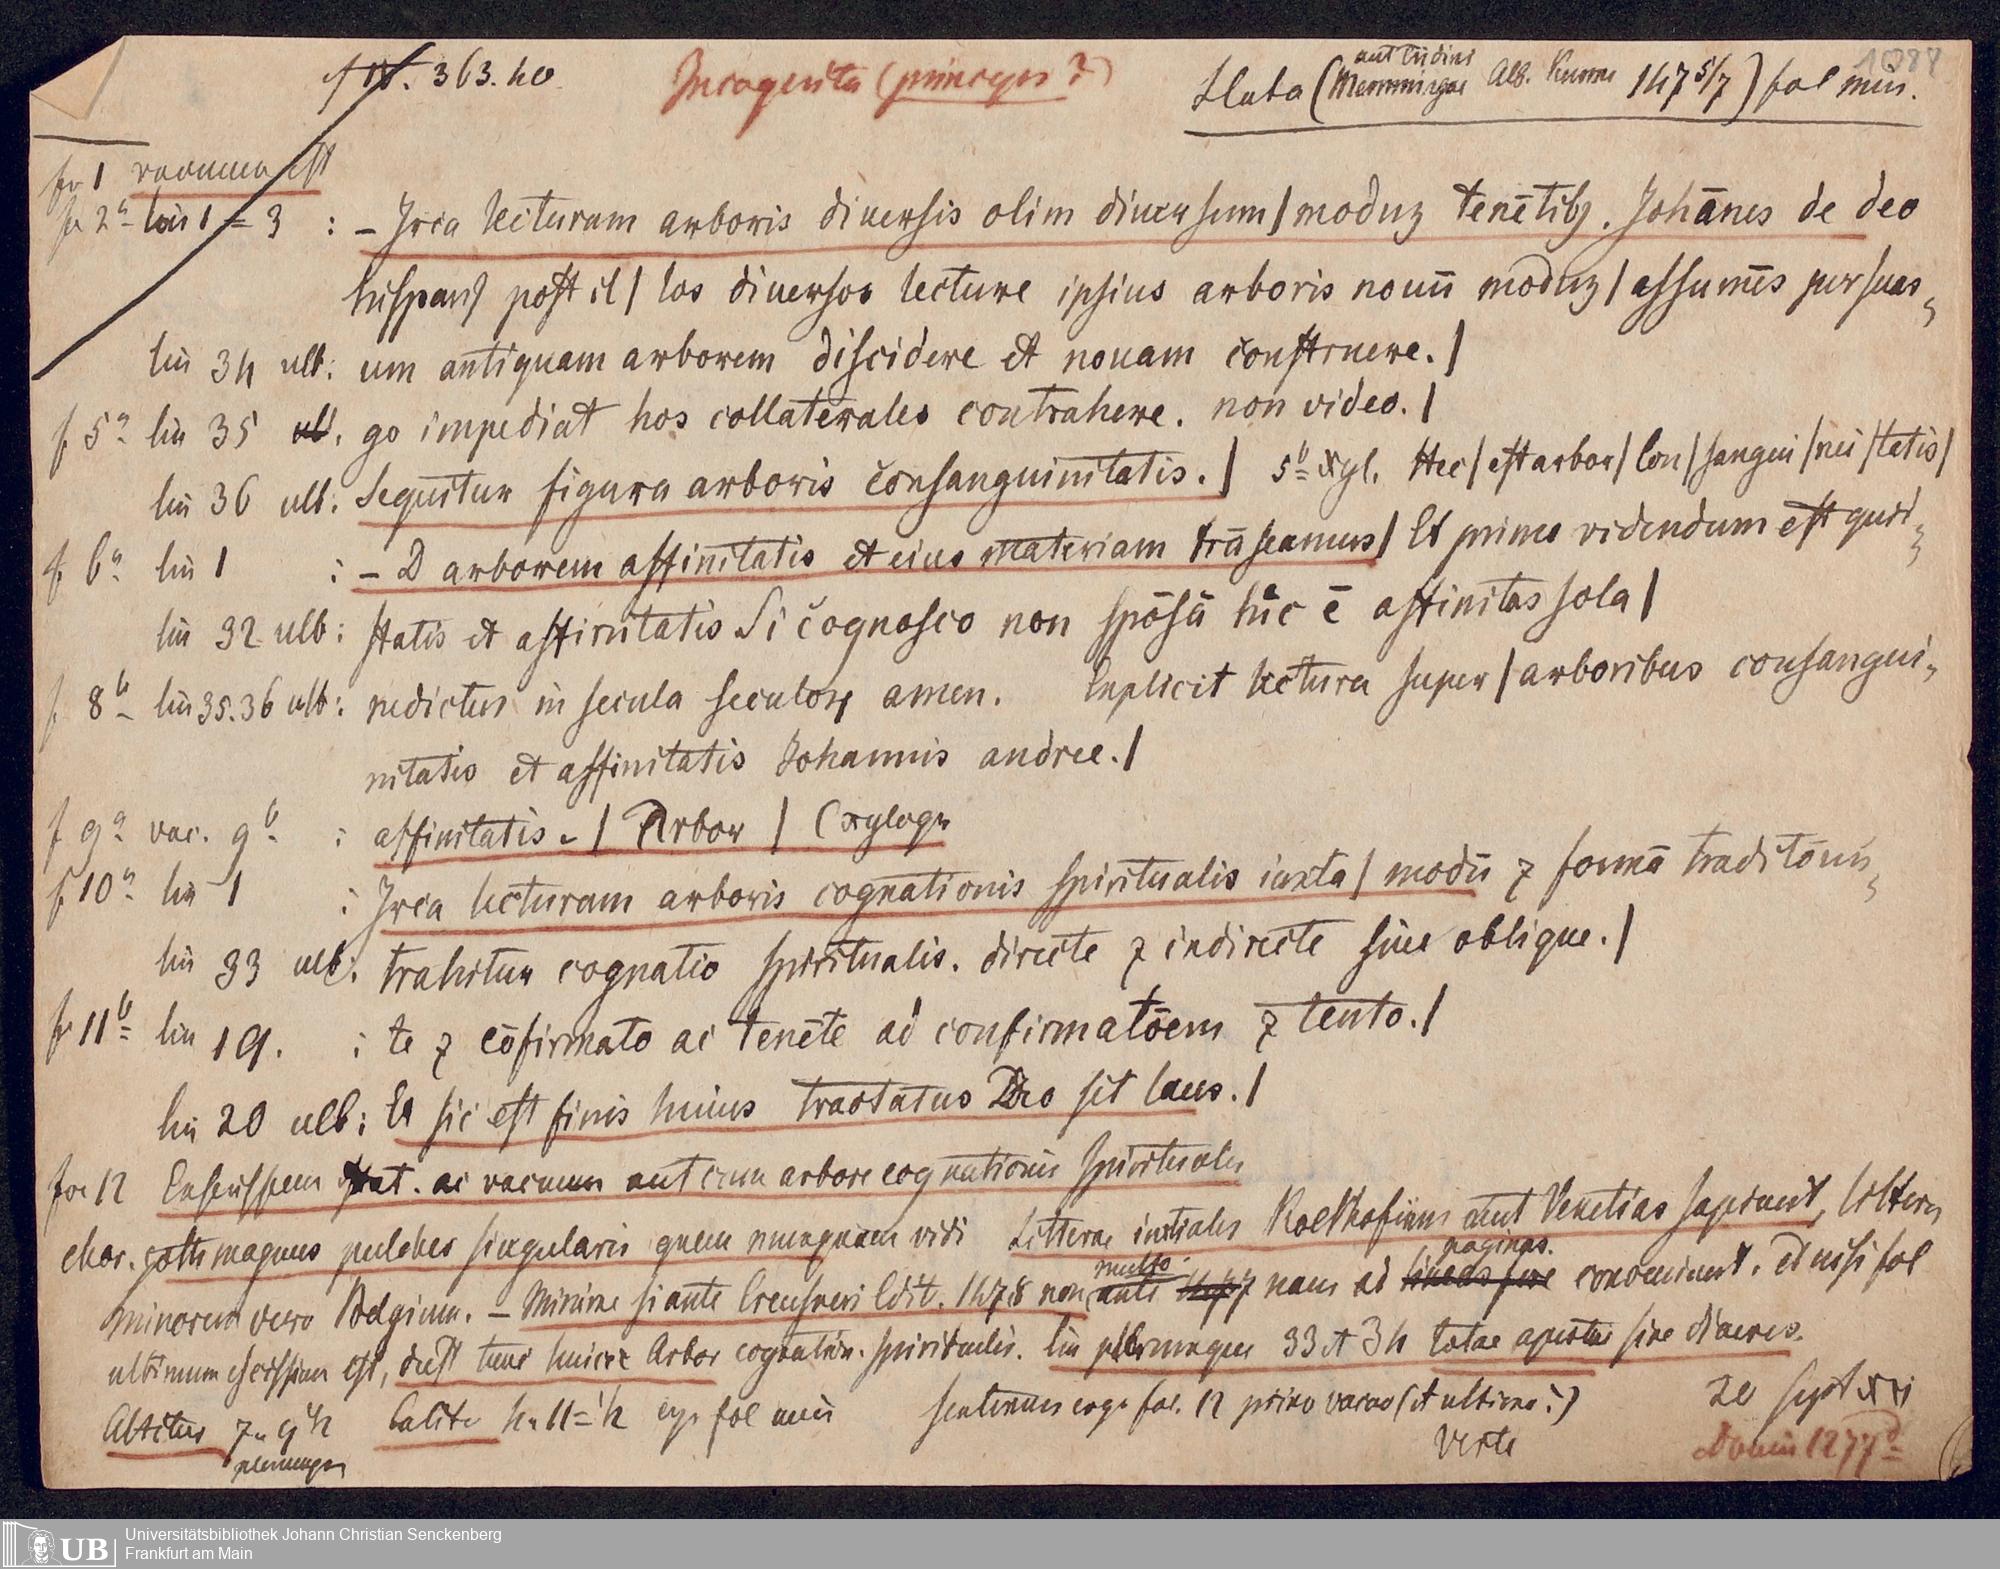 363. 40 Incognita (princeps ?) aut Tridini 1088
Sluta (Memmingae Alb. Kunne 147 5/7) fol min.
fo 1 vacuum est
fo 2ª lin 1 = 3 : – Jrca lecturam arboris diuersis olim diuersum | moduz tenētibz. Johānes de deo
hispanꝰ post il | los diuersos lecture ipsius arboris nouū moduz | assumēs per suas-
lin 34 ult: um antiquam arborem discidere et nouam construere. |
f 5ª lin 35 ult. go impediat hos collaterales contrahere. non video. |
lin 36 ult: Sequitur figura arboris consanguinitatis. | 5ᵇ xyl. Hec | est arbor | Con | sangui | nei | tatis |
f 6ª lin 1 : – D arborem affinitatis et eius materiam trāseamus | Et primo videndum est quid-
lin 32 ult: statis et affinitatis Si cognosco non spōsā hic ē affinitas sola |
f 8ᵇ lin 35.36 ult: nedictus in secula seculoꝝ amen. Explicit lectura super | arboribus consangui-
nitatis et affinitatis Johannis andree. |
f 9ª vac. 9ᵇ : affinitatis. | Arbor | (xylogr
f 10ª lin 1 : Jrca lecturam arboris cognationis spiritualis iuxta | modū ⁊ formā traditōnis-
lin 33 ult: trahitur cognatio spiritualis. directe ⁊ indirecte siue oblique. |
fo 11ᵇ lin 19. : te ⁊ cōfirmato ac tenēte ad confirmatōem ⁊ tento. |
lin 20 ult: Et sic est finis huius tractatus Deo sit laus. |
fo 12 Enscissum erat. ac vacuum aut cum arbore cognationis spiritualis
char. goth magnus pulcher singularis quem nunquam vidi Litterae initiales Koelhofium aut Venetias sapiunt, littera
minorem vero Belgium. – Minime si ante Creusneri Edit. 1478 non multo ante 1477 nam ad lineas fere paginas. conveniunt. et nisi fol
ultimum escissum est, deest tunc huic Arbor cognation. spiritualis. lin plerumque 33 et 34 totae apertae sine diaeres.
Altitu 7" 9'h Latit 4" 11='h ergo fol min sentimus ergo fol. 12 primo vacuo (et ultimo?) 20 sept xxi
plerumque verte